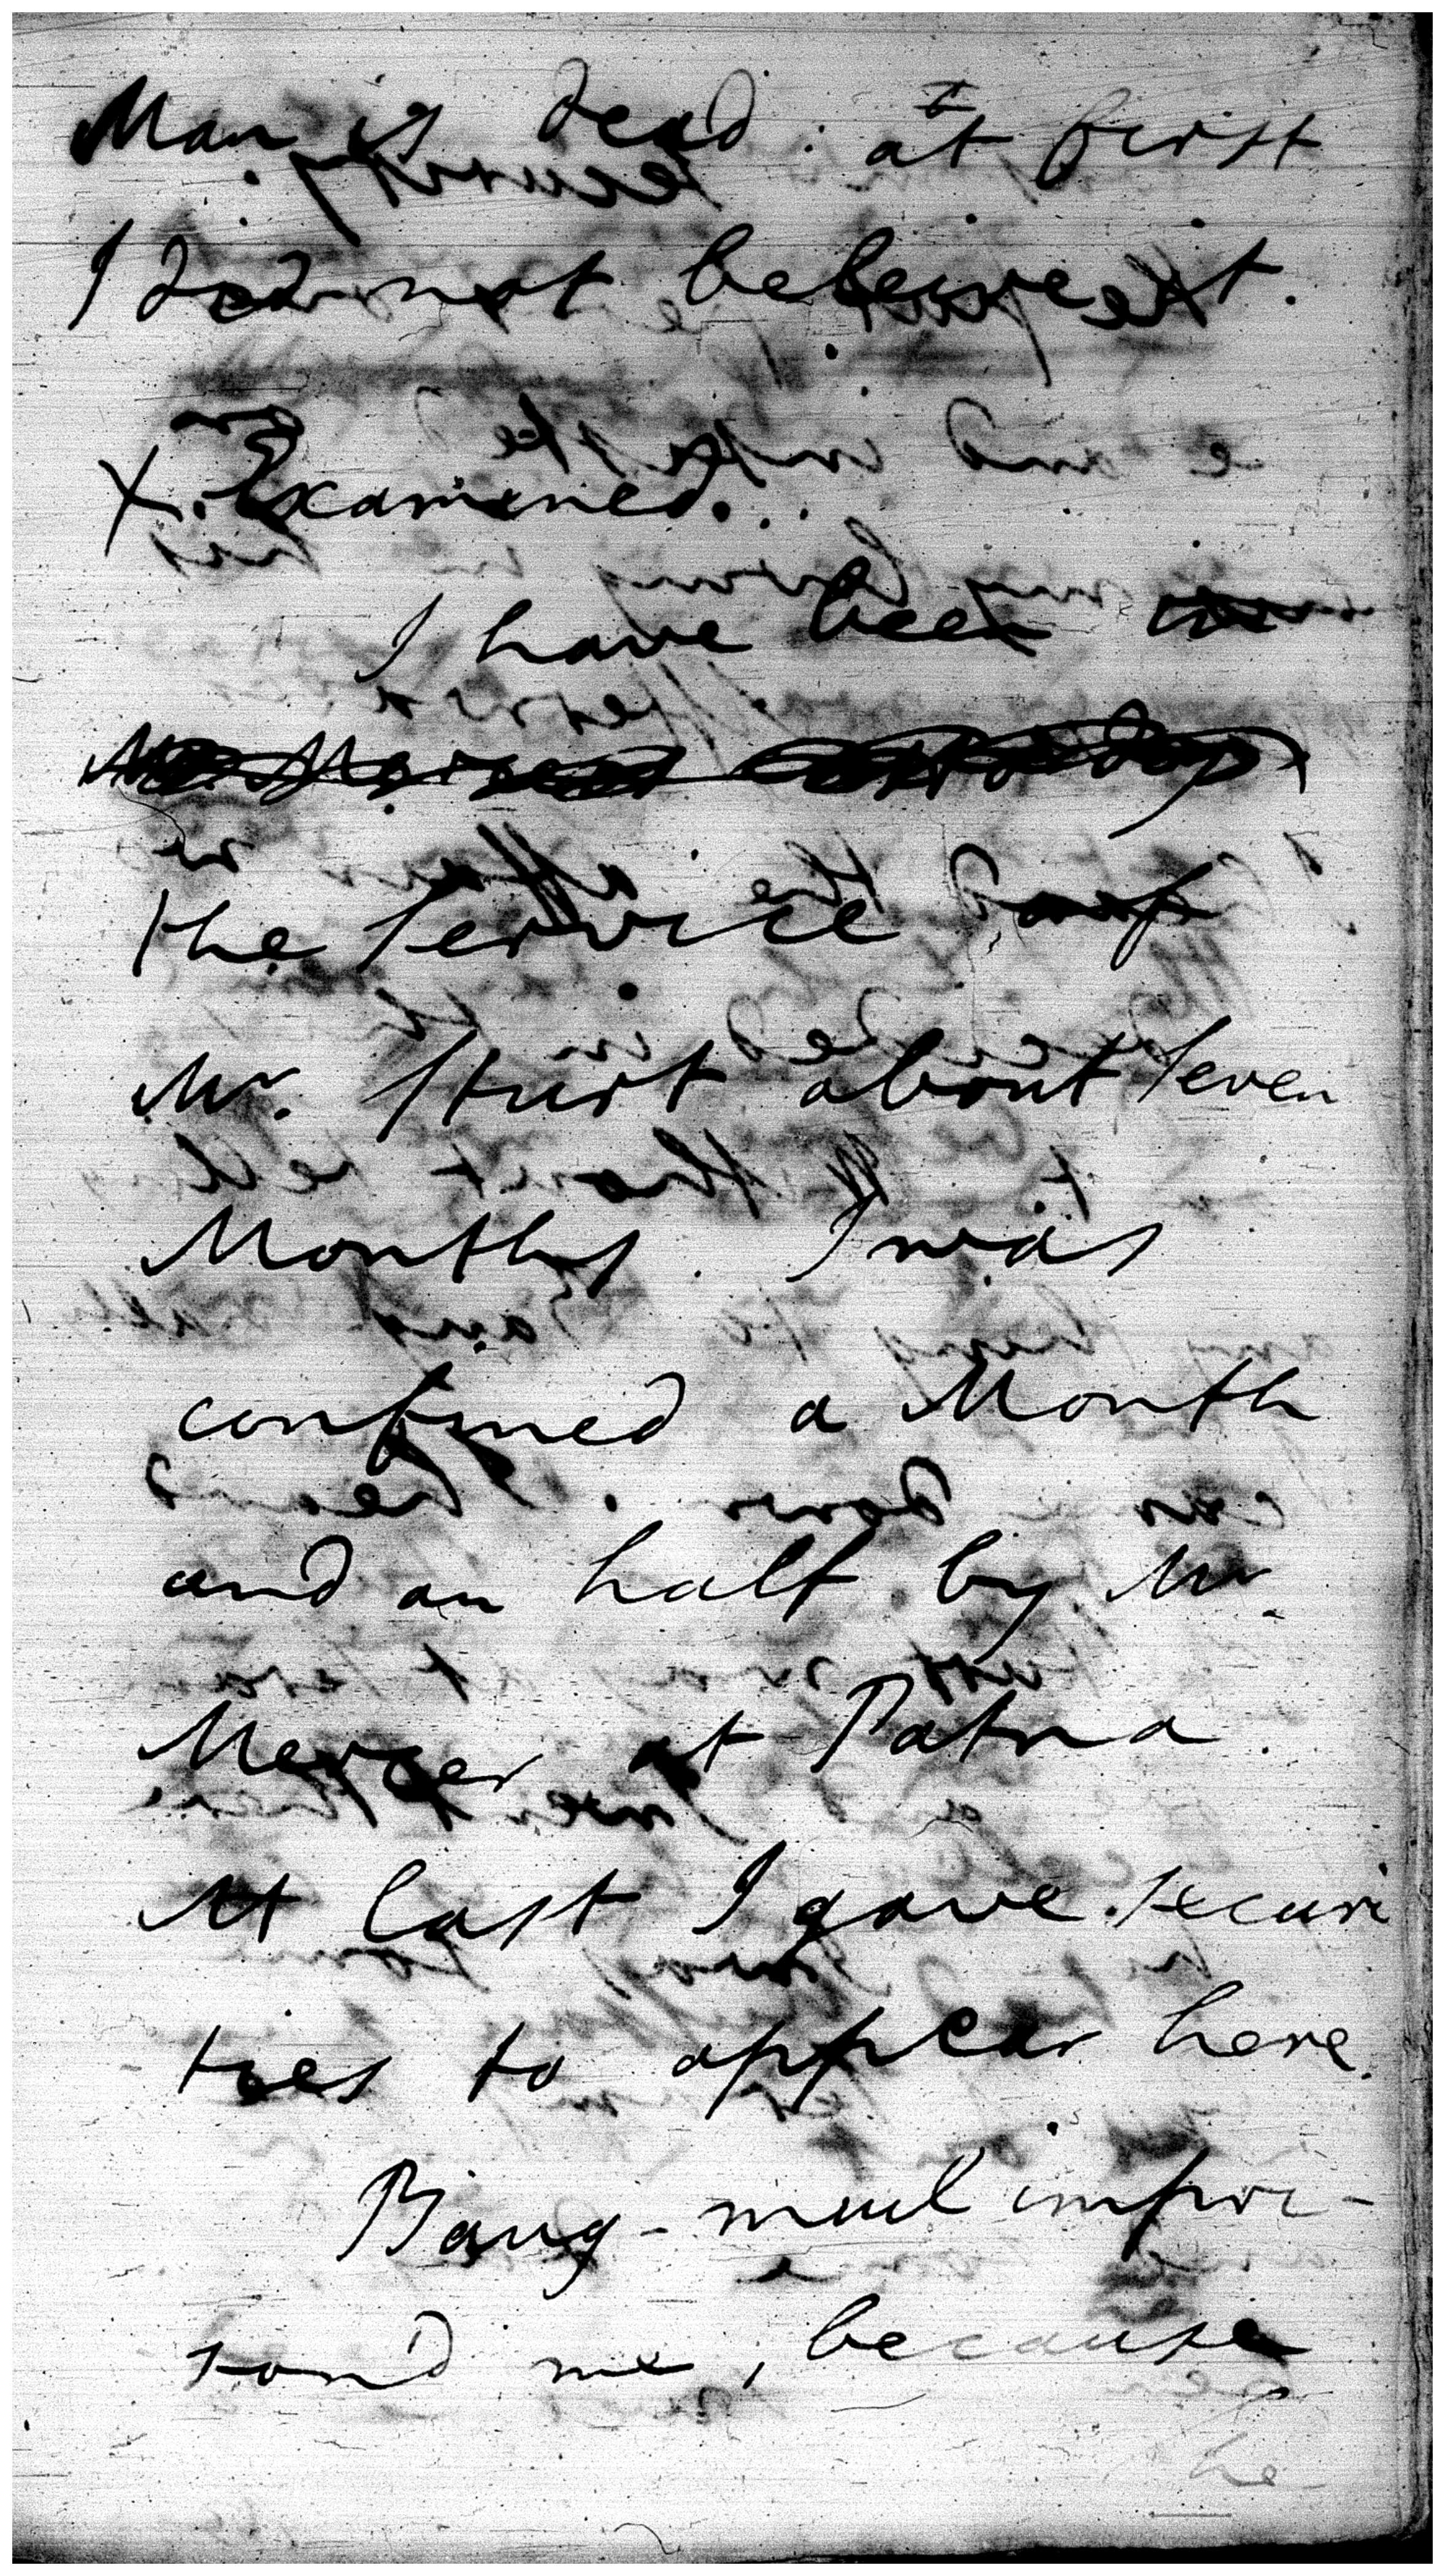 Man is dead: at first
I did not beleive it.
X. Examined...
I have been in
the Service of
Mr. Sturt about seven
Months. I was
confined a Month
and an half by Mr.
Mercer at Patna
At last I gave securi
ties to appear here.
Baug-mul impri-
son'd me, because
he